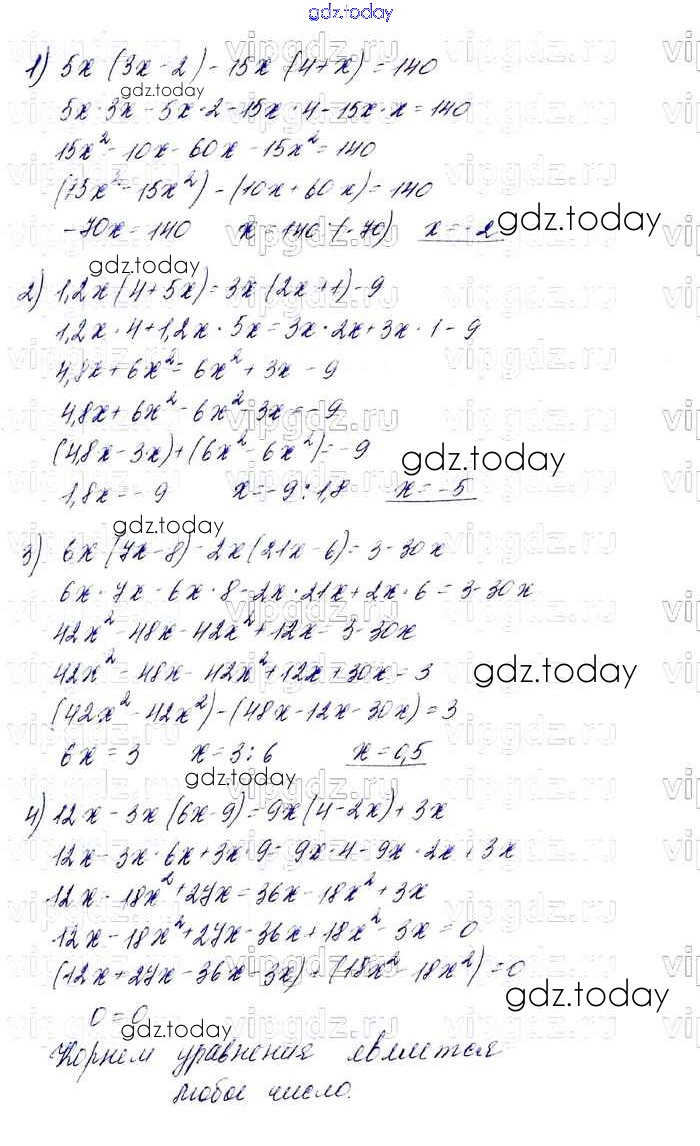 gdz.today
1) 5x (3x - 2) - 15x (4 + x) = 140
gdz.today
5x · 3x - 5x · 2 - 15x · 4 - 15x · x = 140
15x² - 10x - 60x - 15x² = 140
(15x² - 15x²) - (10x + 60x) = 140
-70x = 140 x = 140 : (-70) x = -2
gdz.today
gdz.today
2) 1,2x (4 + 5x) = 3x (2x + 1) - 9
1,2x · 4 + 1,2x · 5x = 3x · 2x + 3x · 1 - 9
4,8x + 6x² = 6x² + 3x - 9
4,8x + 6x² - 6x² - 3x = -9
(4,8x - 3x) + (6x² - 6x²) = -9
gdz.today
1,8x = -9 x = -9 : 1,8 x = -5
gdz.today
3) 6x (7x - 8) - 2x (21x - 6) = 3 - 30x
6x · 7x - 6x · 8 - 2x · 21x + 2x · 6 = 3 - 30x
42x² - 48x - 42x² + 12x = 3 - 30x
42x² - 48x - 42x² + 12x + 30x = 3
gdz.today
(42x² - 42x²) - (48x - 12x - 30x) = 3
6x = 3 x = 3 : 6 x = 0,5
gdz.today
4) 12x - 3x (6x - 9) = 9x (4 - 2x) + 3x
12x - 3x · 6x + 3x · 9 = 9x · 4 - 9x · 2x + 3x
12x - 18x² + 27x = 36x - 18x² + 3x
12x - 18x² + 27x - 36x + 18x² - 3x = 0
(12x + 27x - 36x - 3x) + (18x² - 18x²) = 0
gdz.today
0 = 0
gdz.today
Корнем уравнения является
любое число.